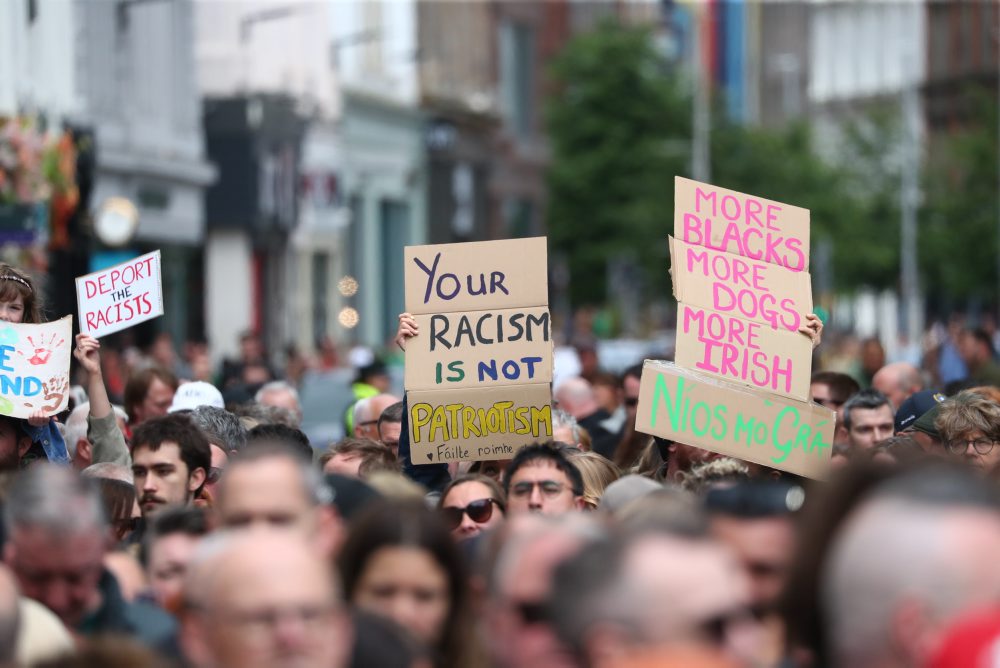 DEPORT
THE
RACISTS
YOUR
RACISM
IS NOT
PATRIOTISM
♥ Fáilte roimhe
MORE
BLACKS
MORE
DOGS
MORE
IRISH
Níos mo Grá